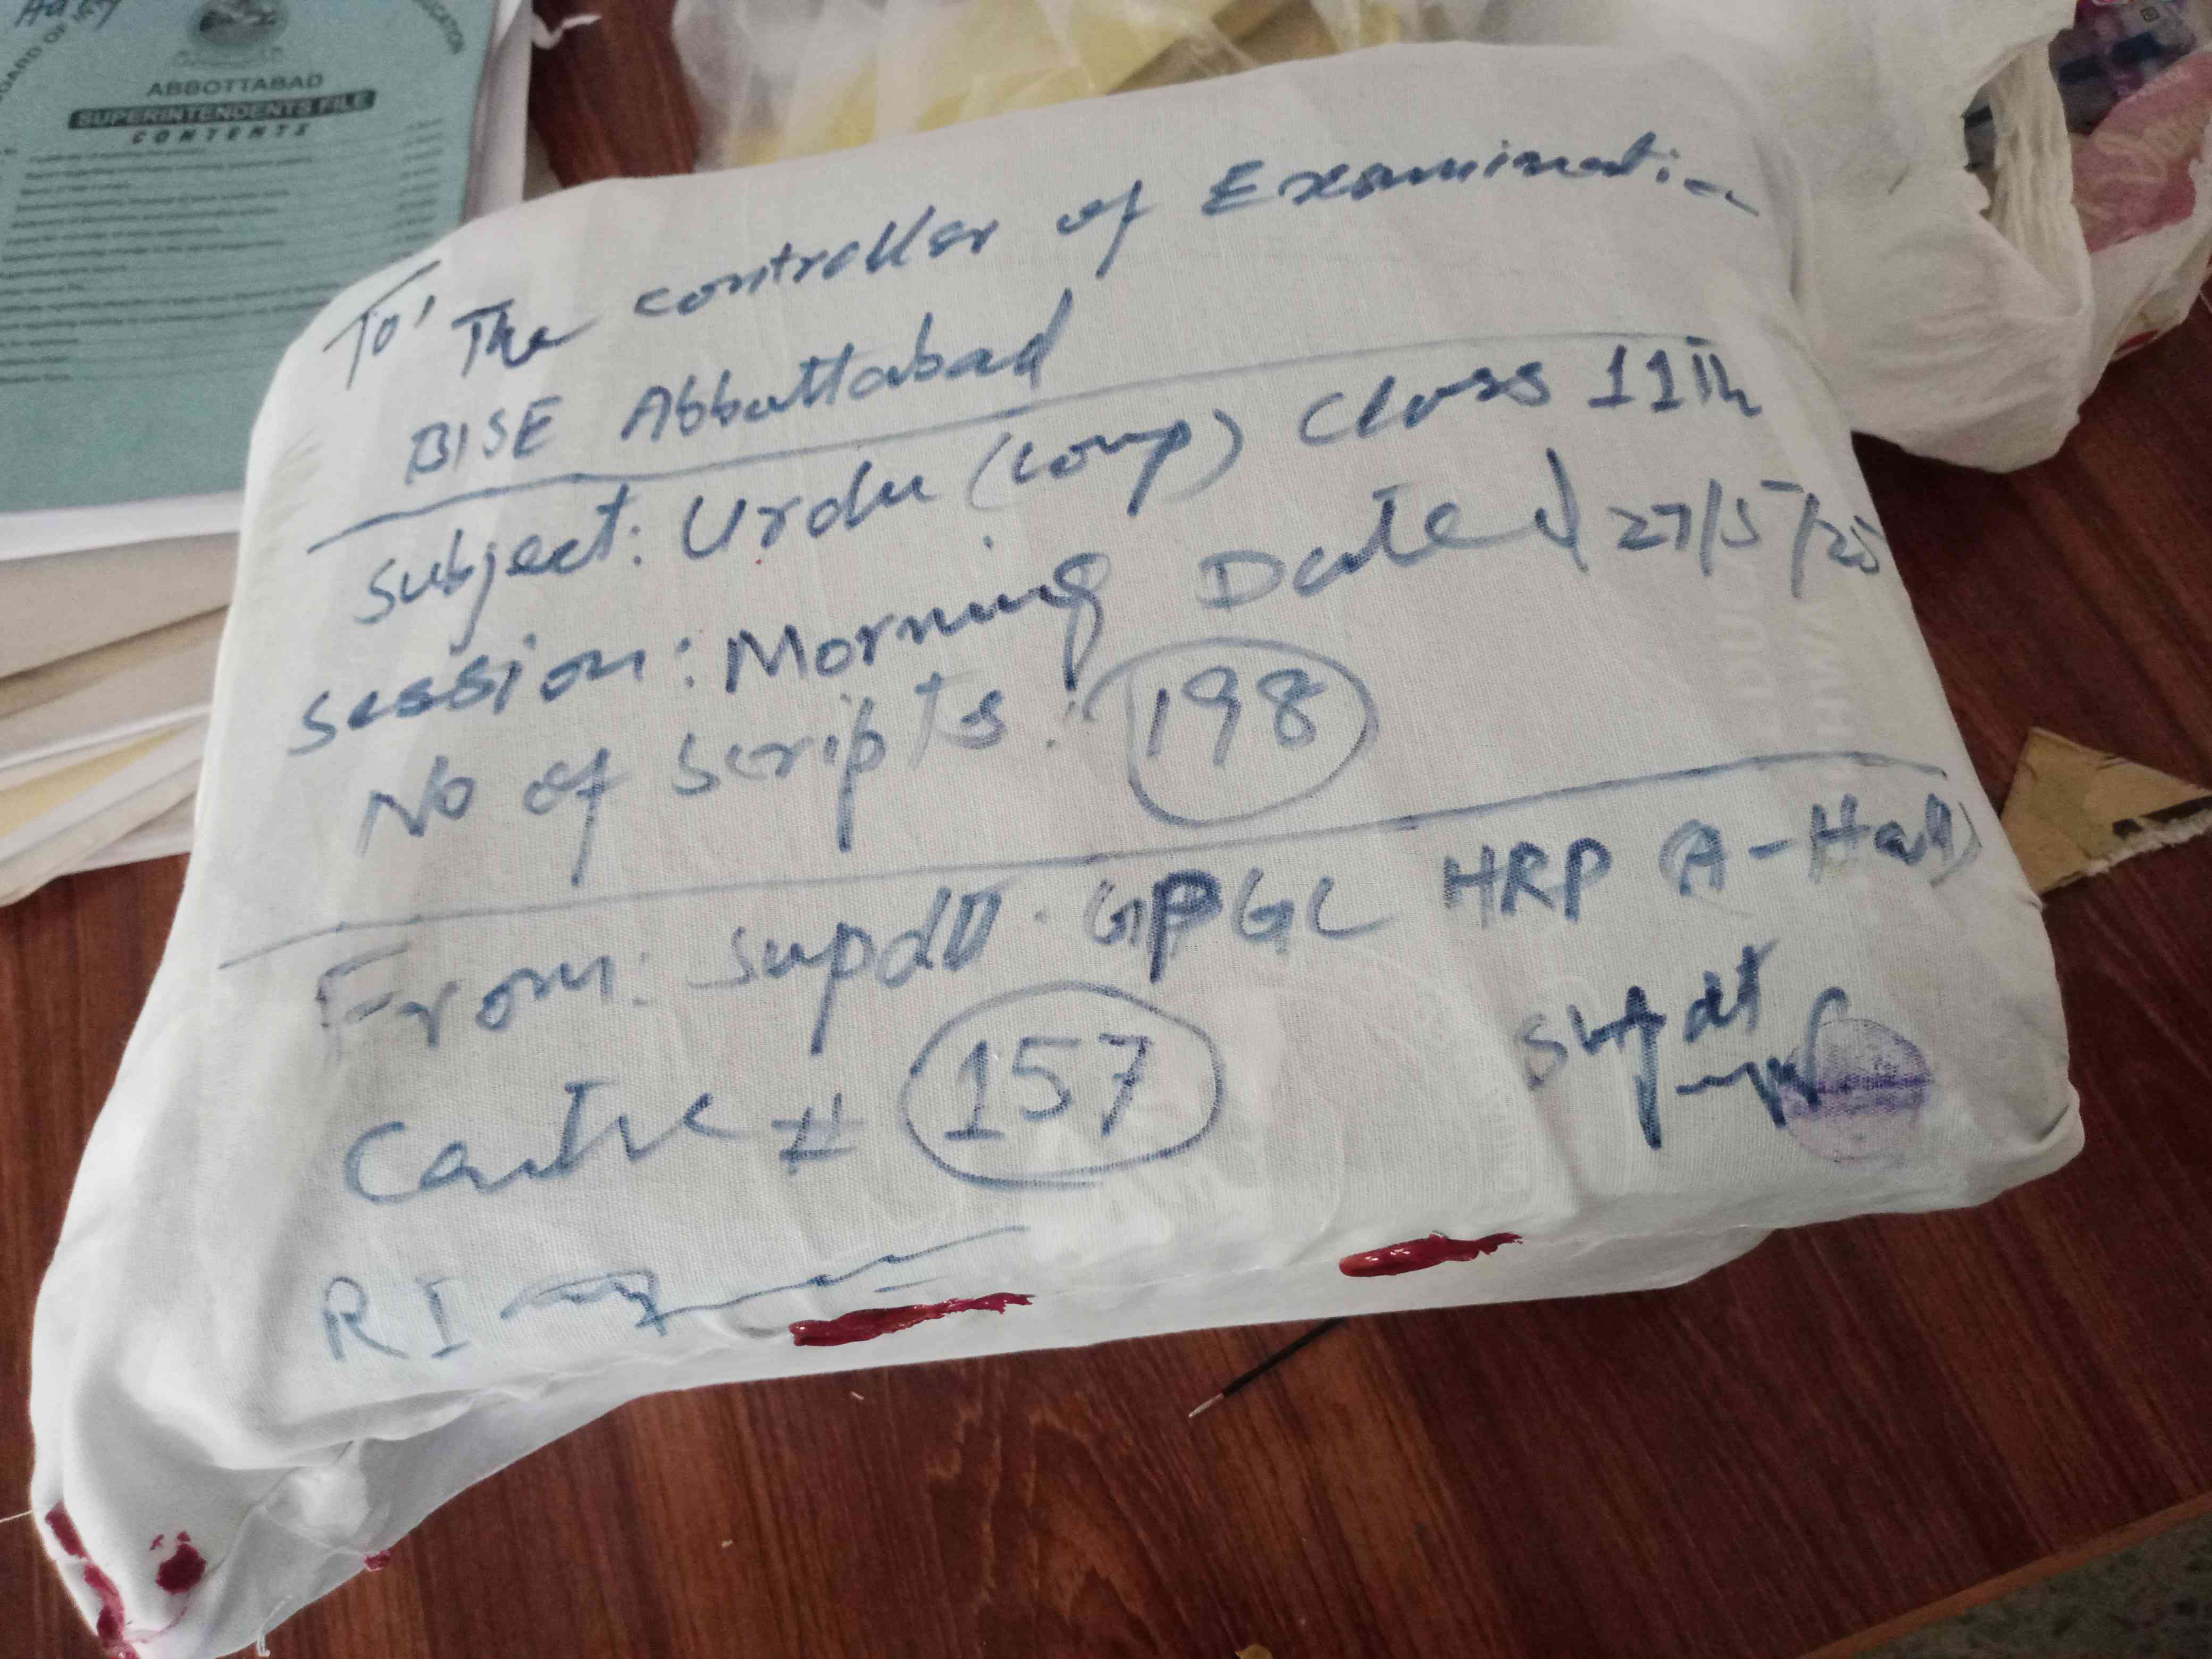 ABBOTTABAD
SUPERINTENDENTS FILE
CONTENTS
To, The controller of Examination
BISE Abbottabad
Subject: Urdu (comp) Class 11th
Session: Morning Dated 27/5/25
No of Scripts: 198
From: Supdtt. GPGC HRP (A-Hall)
Centre # 157
Supdt
RI